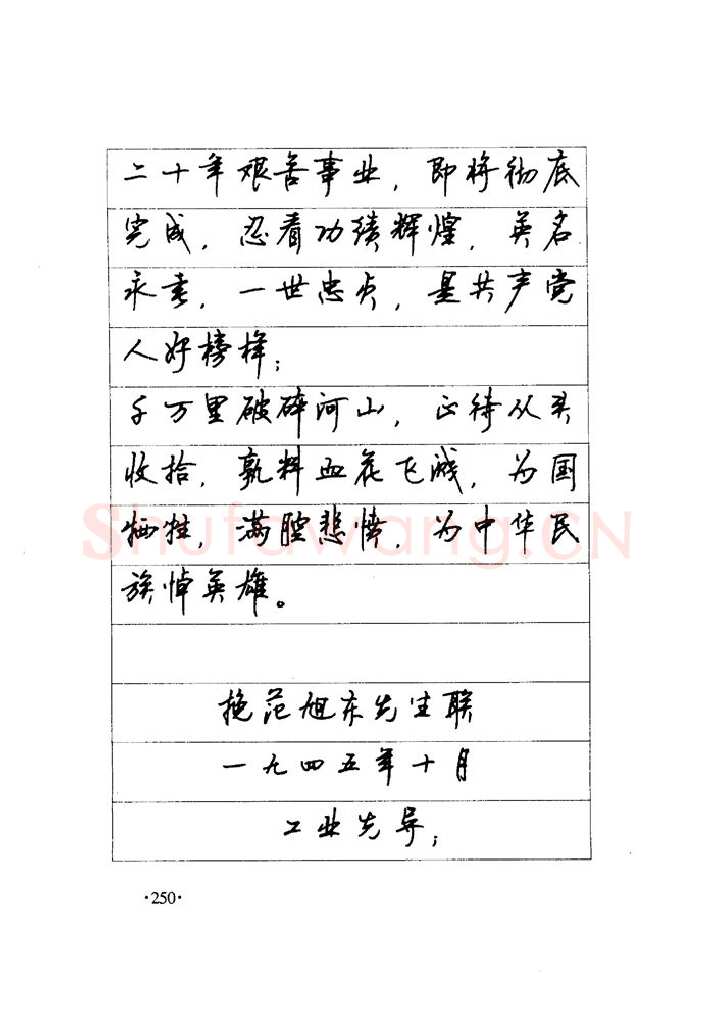 二十年艰苦事业，即将彻底
完成，忍看功绩辉煌，英名
永垂，一世忠贞，是共产党
人好榜样；
千万里破碎河山，正待从头
收拾，孰料血花飞溅，为国
牺牲，满腔悲愤，为中华民
族悼英雄。
挽范旭东先生联
一九四五年十月
工业先导；
·250·
Shufawang.CN